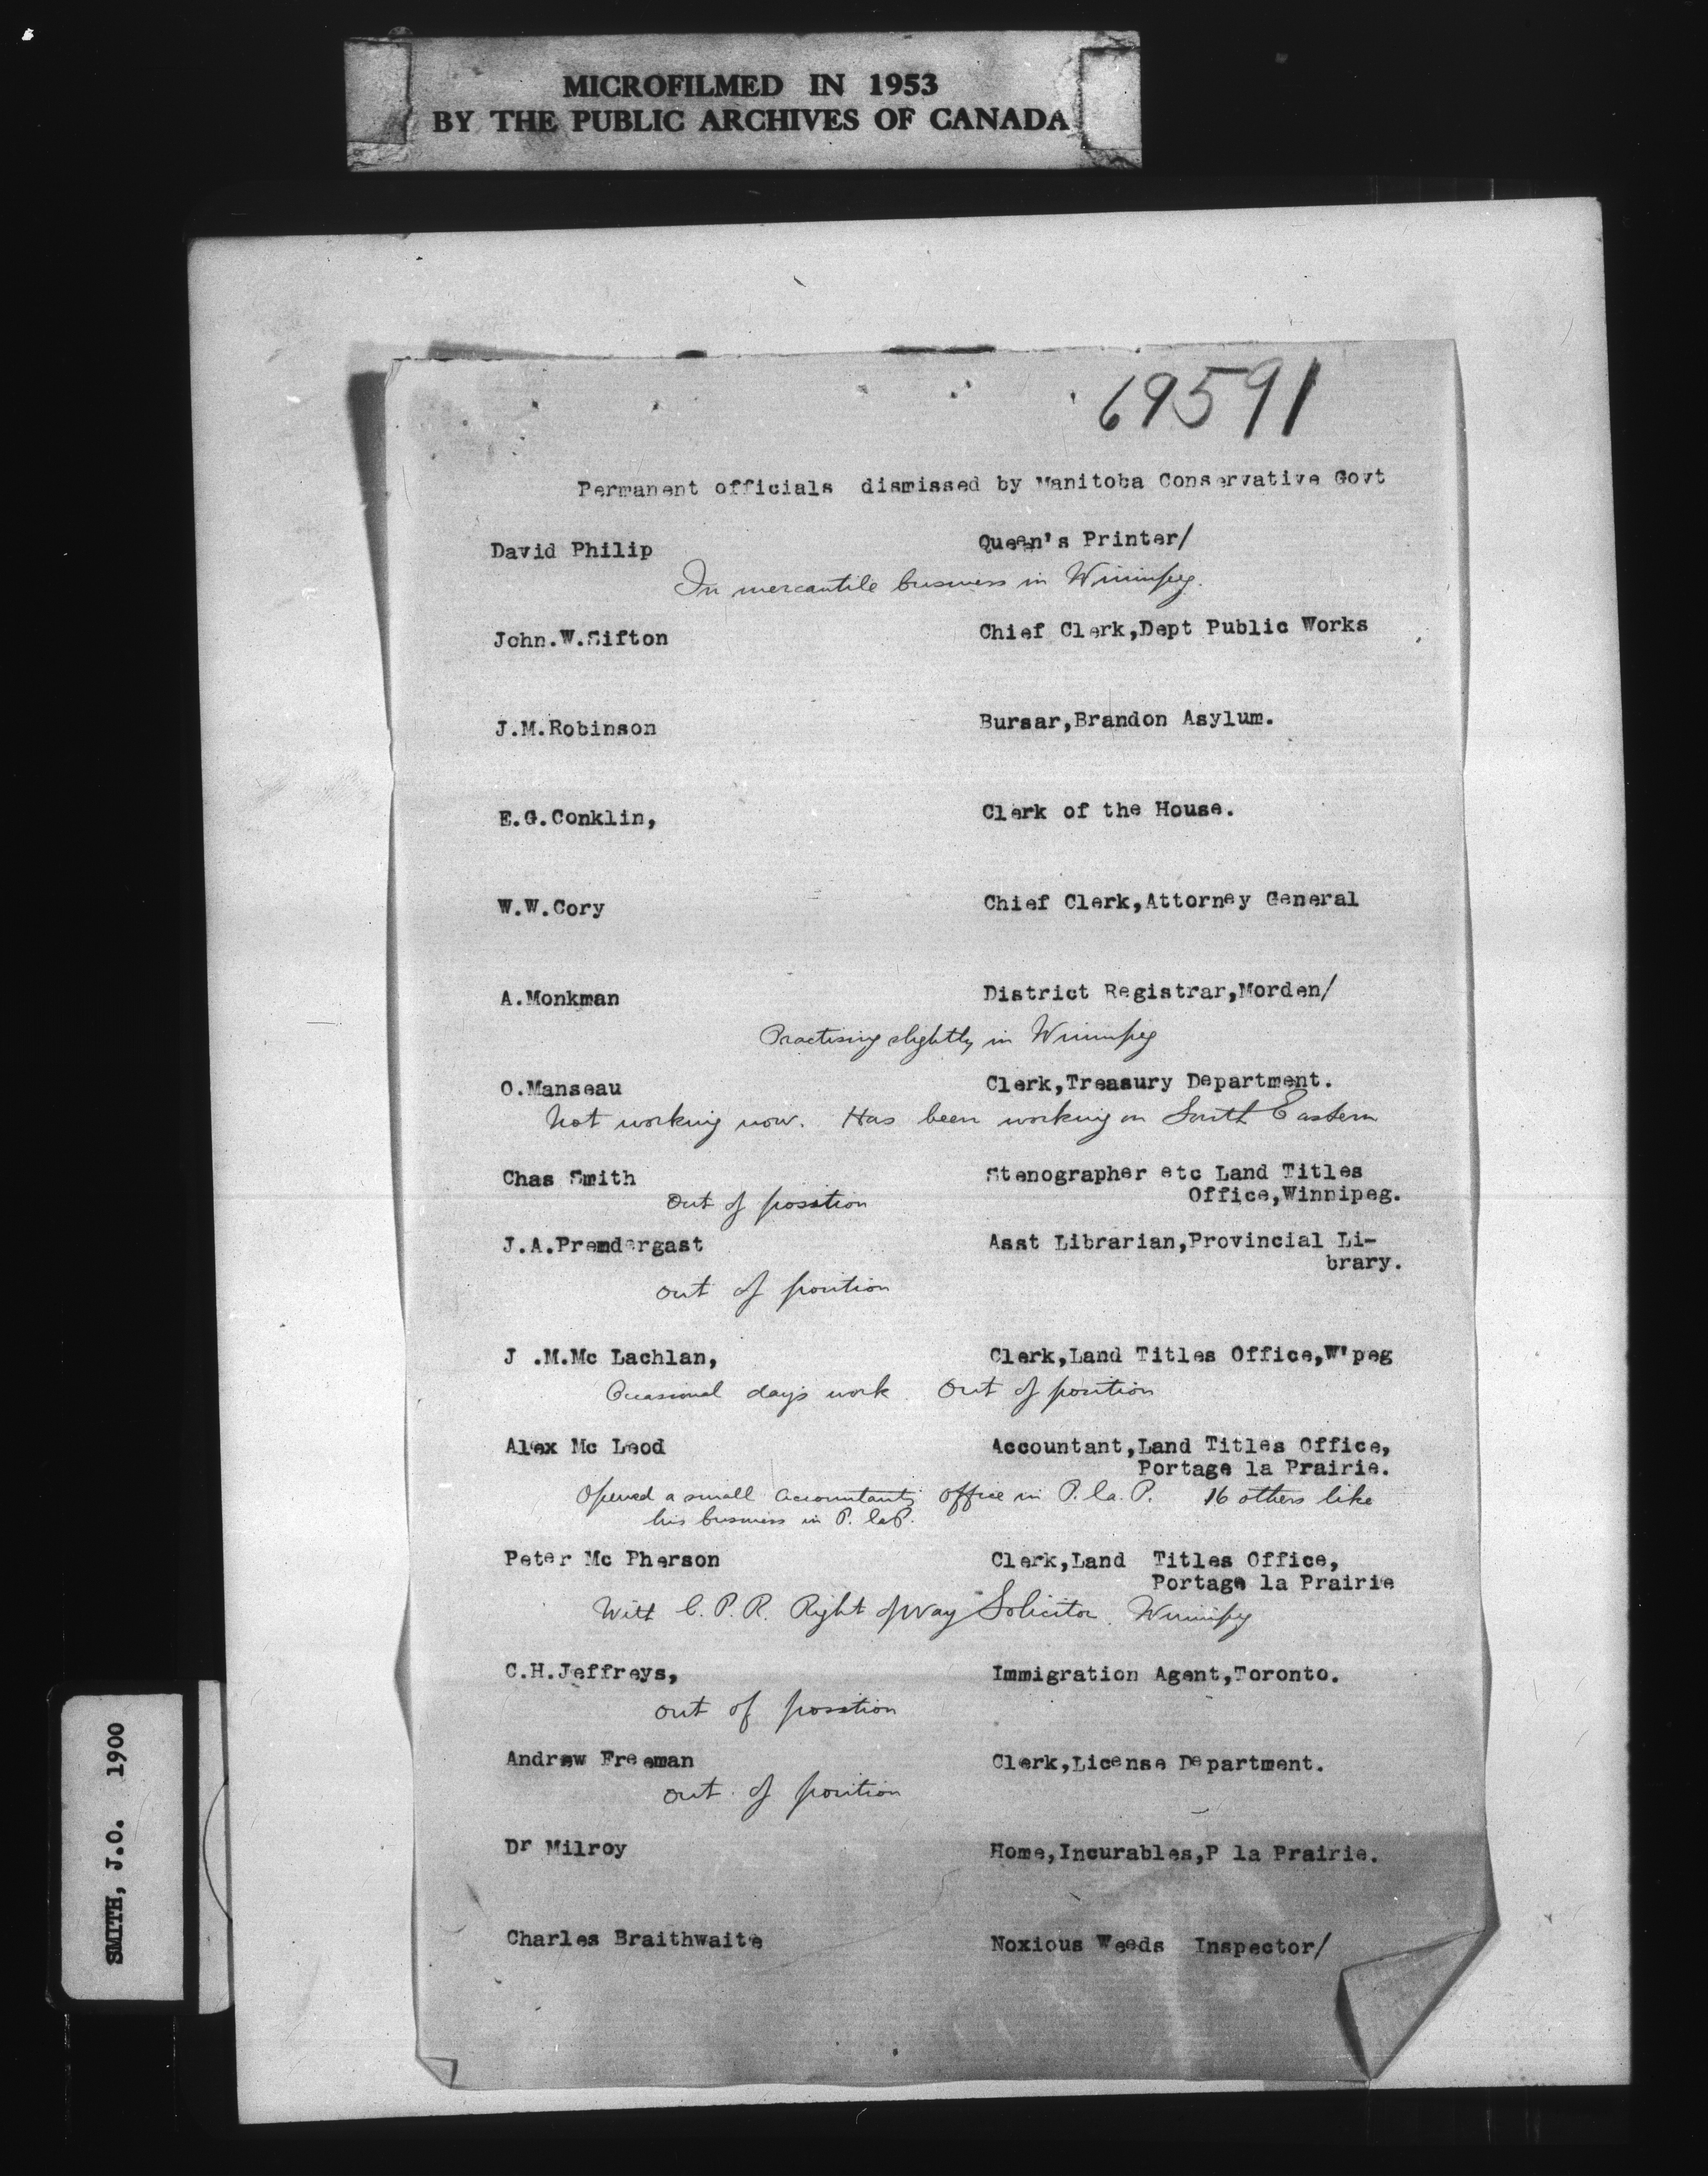 MICROFILMED IN 1953
BY THE PUBLIC ARCHIVES OF CANADA
69591
Permanent officials dismissed by Manitoba Conservative Govt
David Philip Queen's Printer/
In mercantile business in Winnipeg.
John.W.Sifton Chief Clerk,Dept Public Works
J.M.Robinson Bursar,Brandon Asylum.
E.G.Conklin, Clerk of the House.
W.W.Cory Chief Clerk,Attorney General
A.Monkman District Registrar,Morden/
Practising slightly in Winnipeg
O.Manseau Clerk,Treasury Department.
Not working now. Has been working on South Eastern
Chas Smith Stenographer etc Land Titles
Office,Winnipeg.
Out of position
J.A.Premdergast Asst Librarian,Provincial Li-
brary.
out of position
J .M.Mc Lachlan, Clerk,Land Titles Office,W'peg
Occasional days work. Out of position
Alex Mc Leod Accountant,Land Titles Office,
Portage la Prairie.
Opened a small accountants office in P. la. P. 16 others like
his business in P. la P.
Peter Mc Pherson Clerk,Land Titles Office,
Portage la Prairie
With C. P. R. Right of Way Solicitor. Winnipeg
C.H.Jeffreys, Immigration Agent,Toronto.
out of position
Andrew Freeman Clerk,License Department.
out of position
Dr Milroy Home,Incurables,P la Prairie.
Charles Braithwaite Noxious Weeds Inspector/
SMITH, J.O. 1900